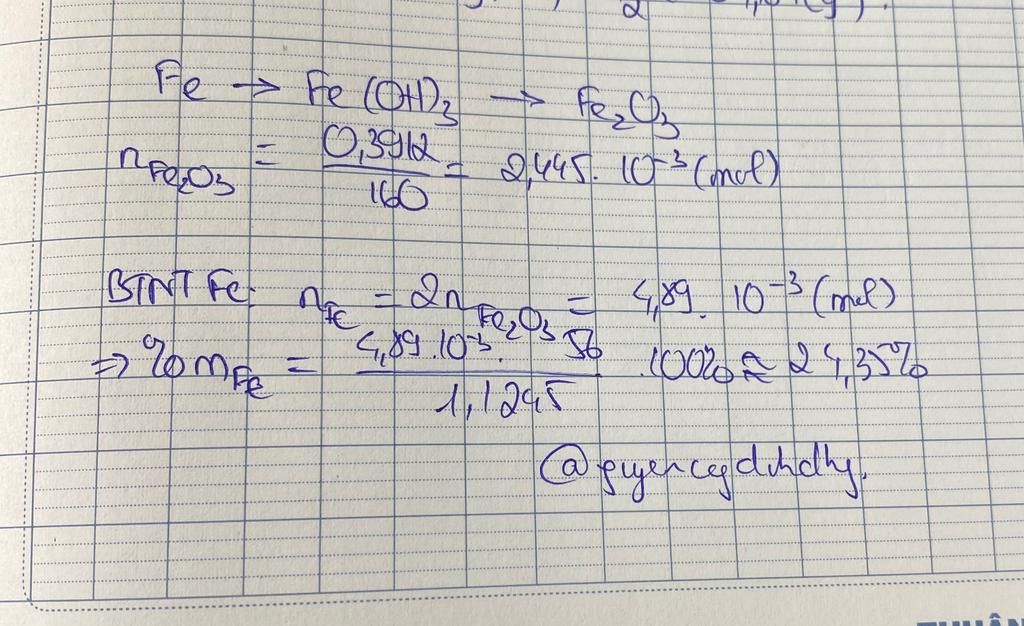 Fe → Fe(OH)₃ → Fe₂O₃
n Fe₂O₃ = 0,3912 / 160 = 2,445. 10⁻³ (mol)
BTNT Fe: n Fe = 2n Fe₂O₃ = 4,89. 10⁻³ (mol)
⇒ %m Fe = 4,89.10⁻³. 56 / 1,1245 .100% ≈ 24,35%